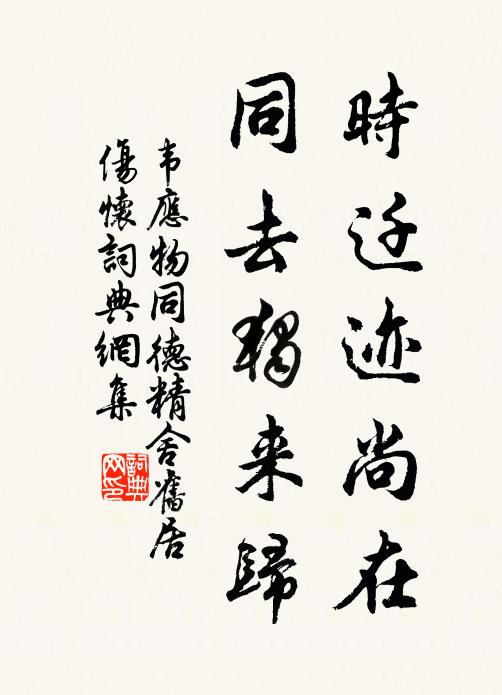 時迁迹尚在
同去独来歸
韦應物同德精舍舊居
傷懷詞典網集
詞典网印